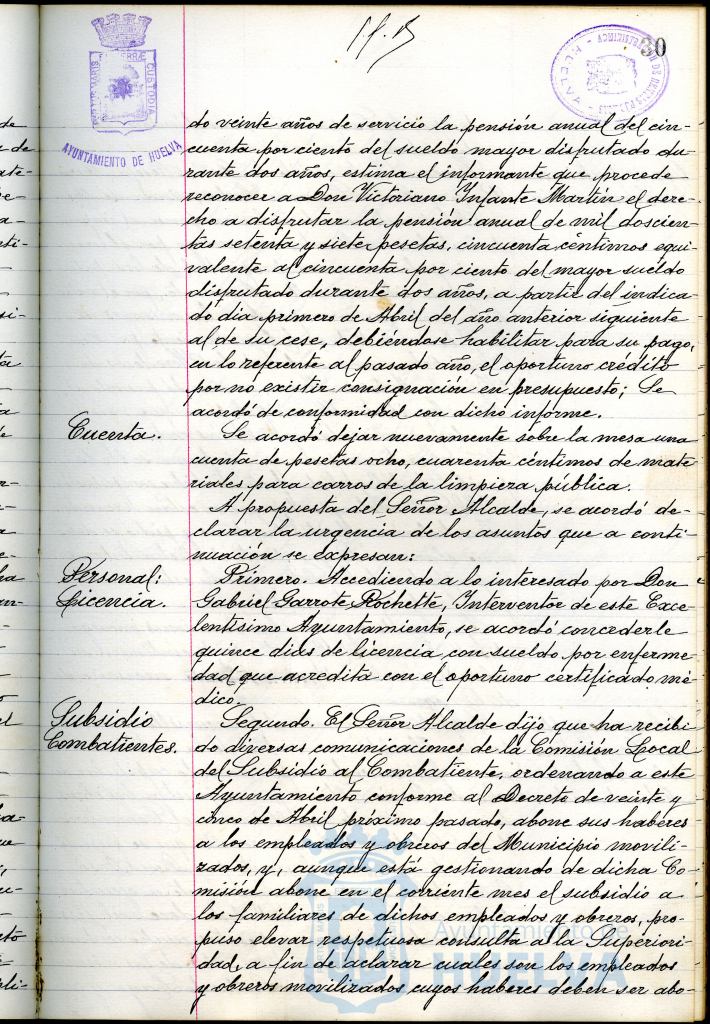 30
AYUNTAMIENTO DE HUELVA
CUSTODIA
do veinte años de servicio la pensión anual del cin-
cuenta por ciento del sueldo mayor disfrutado du-
rante dos años, estima el informante que procede
reconocer a Don Victoriano Infante Martín el dere-
cho a disfrutar la pensión anual de mil doscien-
tas setenta y siete pesetas, cincuenta céntimos equi
valente al cincuenta por ciento del mayor sueldo
disfrutado durante dos años, a partir del indica-
do dia primero de Abril del año anterior siguiente
al de su cese, debiéndose habilitar para su pago,
en lo referente al pasado año, el oportuno crédito
por no existir consignación en presupuesto; Se
acordó de conformidad con dicho informe.
Cuenta.
Se acordó dejar nuevamente sobre la mesa una
cuenta de pesetas ocho, cuarenta céntimos de mate-
riales para carros de la limpieza pública.
A propuesta del Señor Alcalde, se acordó de-
clarar la urgencia de los asuntos que a conti-
nuación se expresan:
Personal:
Licencia.
Primero. Accediendo a lo interesado por Don
Gabriel Garrote Rochette, Interventor de este Exce-
lentísimo Ayuntamiento, se acordó concederle
quince dias de licencia, con sueldo, por enferme-
dad que acredita con el oportuno certificado mé-
dico.
Subsidio
Combatientes.
Segundo. El Señor Alcalde dijo que ha recibi
do diversas comunicaciones de la Comisión Local
del Subsidio al Combatiente, ordenando a este
Ayuntamiento conforme al Decreto de veinte y
cinco de Abril próximo pasado, abone sus haberes
a los empleados y obreros del Municipio movili-
zados, y, aunque está gestionando de dicha Co-
misión abone en el corriente mes el subsidio a
los familiares de dichos empleados y obreros, pro-
puso elevar respetuosa consulta a la Superiori-
dad, a fin de aclarar cuales son los empleados
y obreros movilizados cuyos haberes deben ser abo-
Ayuntamiento de
HUELVA